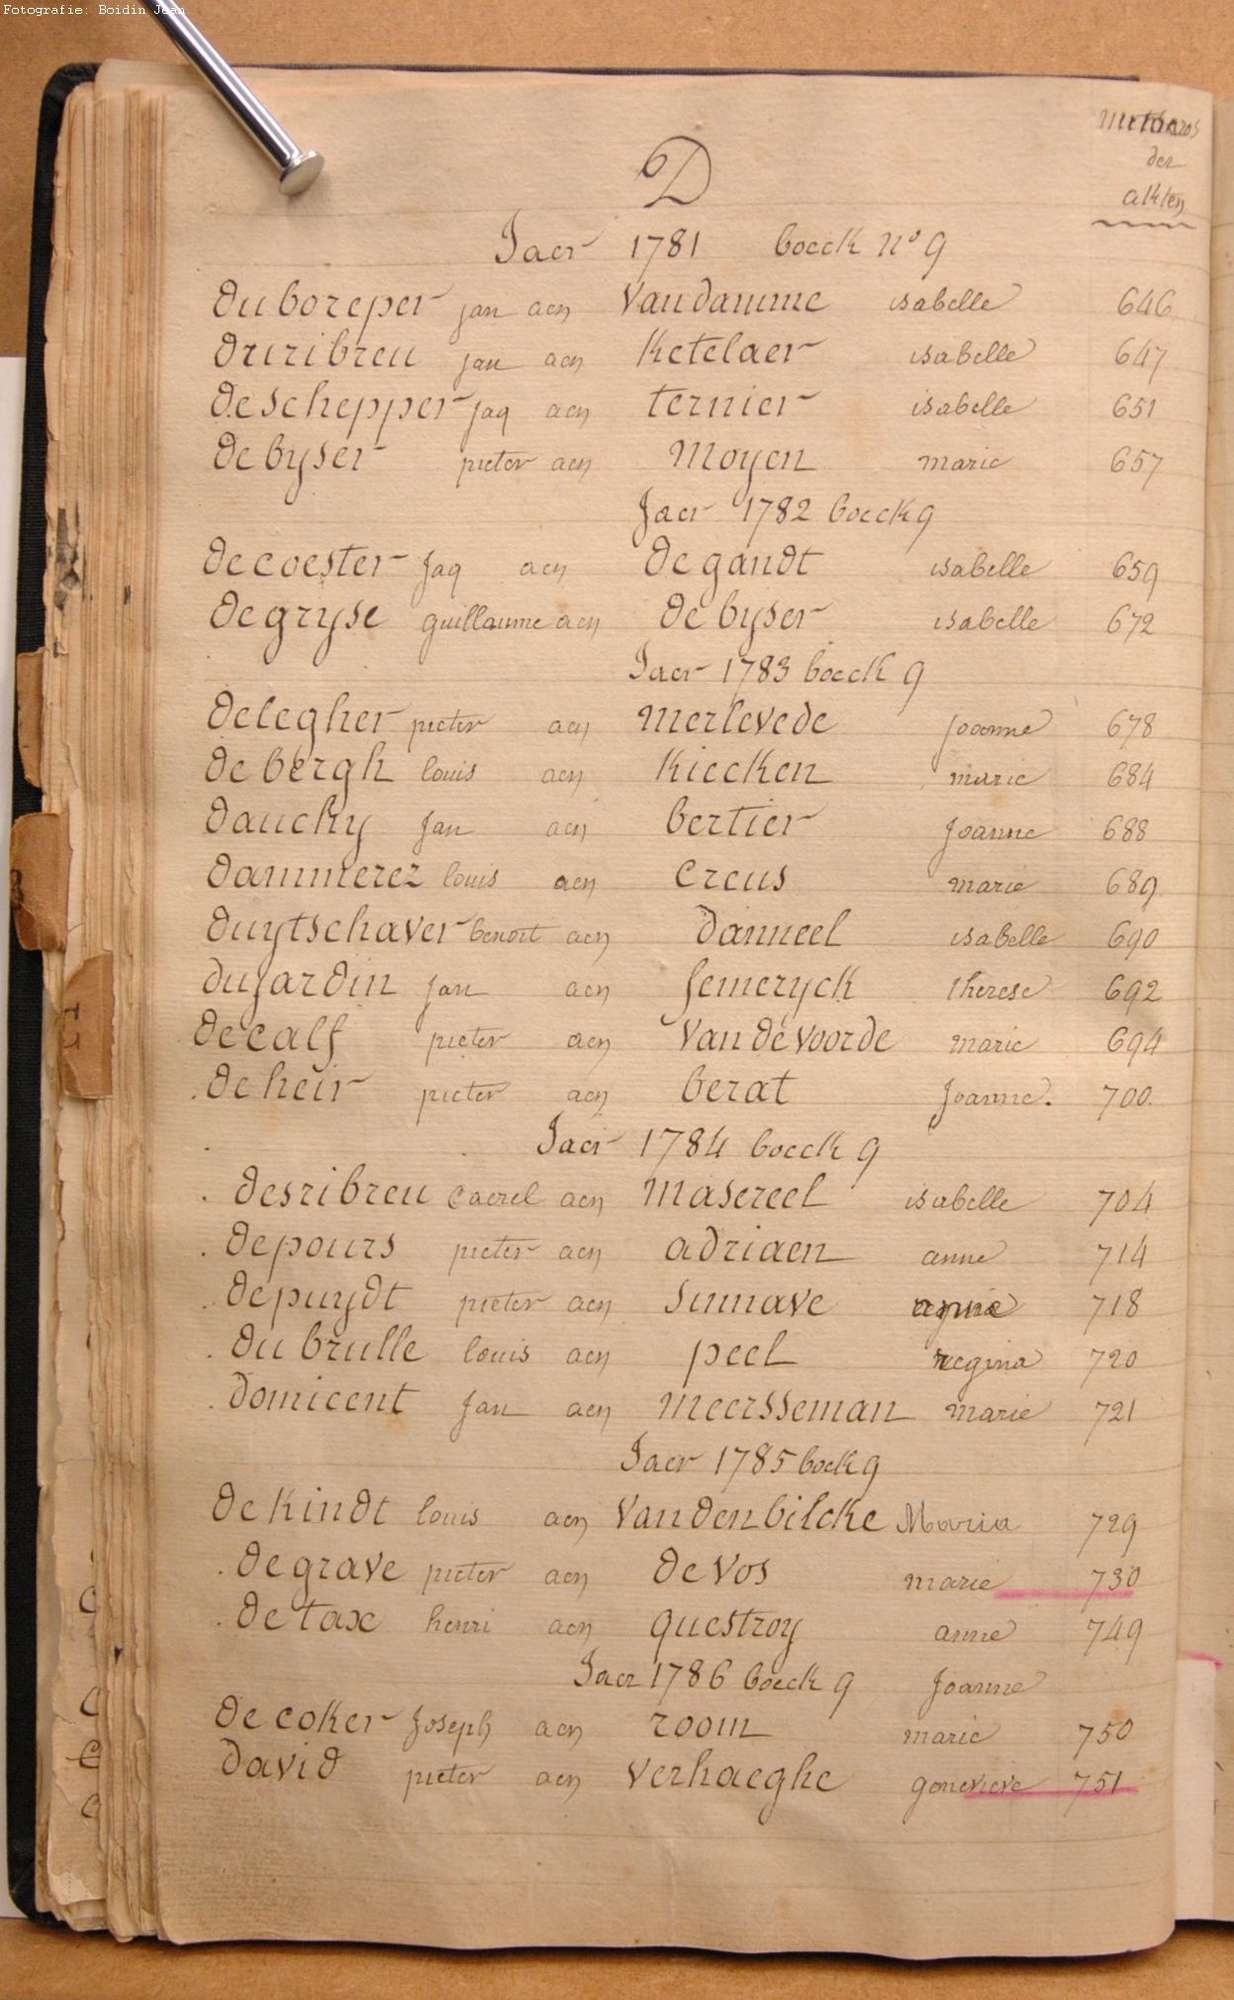 Fotografie: Boidin Jean
der
akten
D
Jaer 1781 boeck n° 9
duboreper jan aen vandamme isabelle 646
druribreu jan aen ketelaer isabelle 647
deschepper jaq aen ternier isabelle 651
debyser pieter aen moyen marie 657
Jaer 1782 boeck 9
decoester jaq aen degandt isabelle 659
degryse guillaume aen debyser isabelle 672
Jaer 1783 boeck 9
delegher pieter aen merlevede joanne 678
debergh louis aen kiecken marie 684
dauchy jan aen bertier joanne 688
dammerez louis aen creus marie 689
duytschaver benoit aen danneel isabelle 690
dujardin jan aen semeryck therese 692
decalf pieter aen vandevoorde marie 694
deheir pieter aen berat joanne. 700
Jaer 1784 boeck 9
desribreu caerel aen masereel isabelle 704
depours pieter aen adriaen anne 714
depuydt pieter aen sinnave 718
dubrulle louis aen peel regina 720
domicent jan aen meersseman marie 721
Jaer 1785 boek 9
dekindt louis aen vandenbilcke Maria 729
degrave pieter aen devos marie 730
detax henri aen questroy anne 749
Jaer 1786 boeck 9 joanne
decoker joseph aen room marie 750
david pieter aen verhaeghe genevieve 751